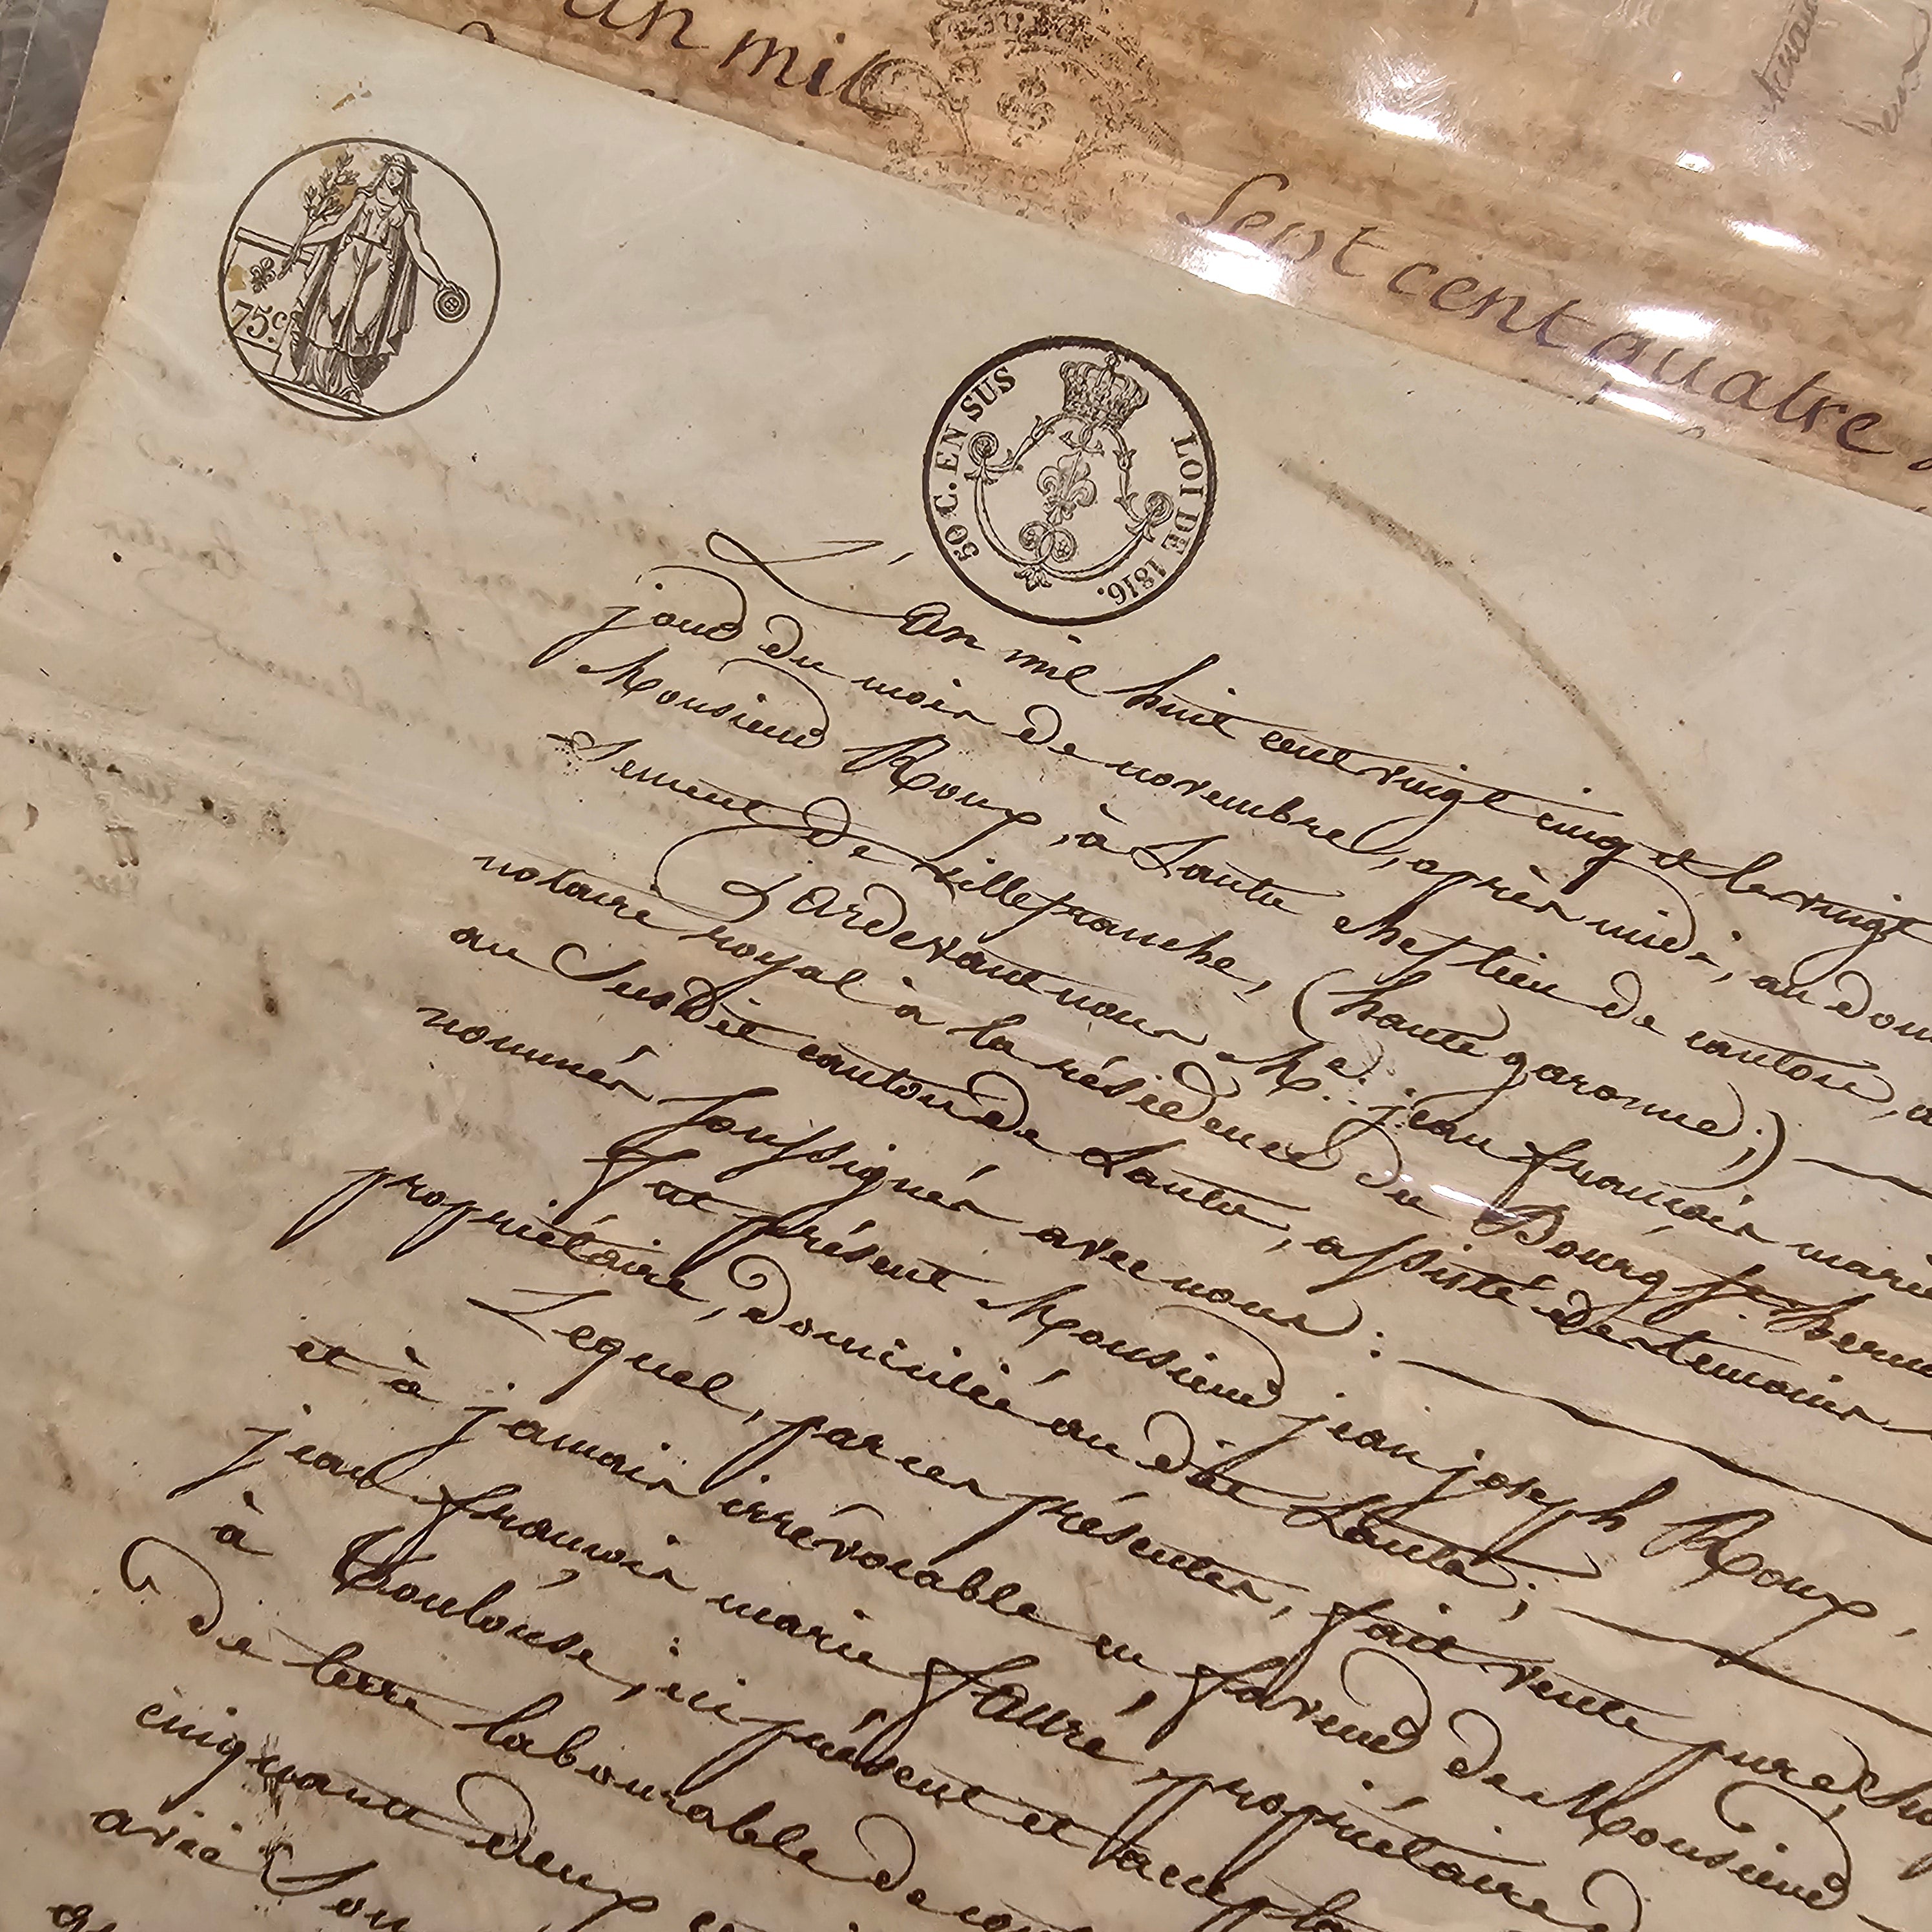 an mil
Sept cent quatre
75c.
50 C. EN SUS LOI DE 1816.
L'an mil huit cent vingt cinq et le vingt
jour du mois de novembre, après midi, au dom
Monsieur Roux, à Lanta chef lieu de canton, a
sement de villefranche, (haute garonne;)
Pardevant nous Me. jean françois marie
notaire royal à la résidence du Bourg St. Bern
au Susdit canton de Lanta, assisté des temoins
nommés soussignés avec nous :
fut présent Monsieur jean joseph Roux,
propriétaire, domicilié au dit Lanta;
Lequel, par ces présentes, fait vente pure, Sim
et à jamais irrévocable en faveur de Monsieur
jean françois marie fauré, propriétaire
à Toulouse, ici présent et accepta
de terre labourable de con
cinquante deux
avié Sou